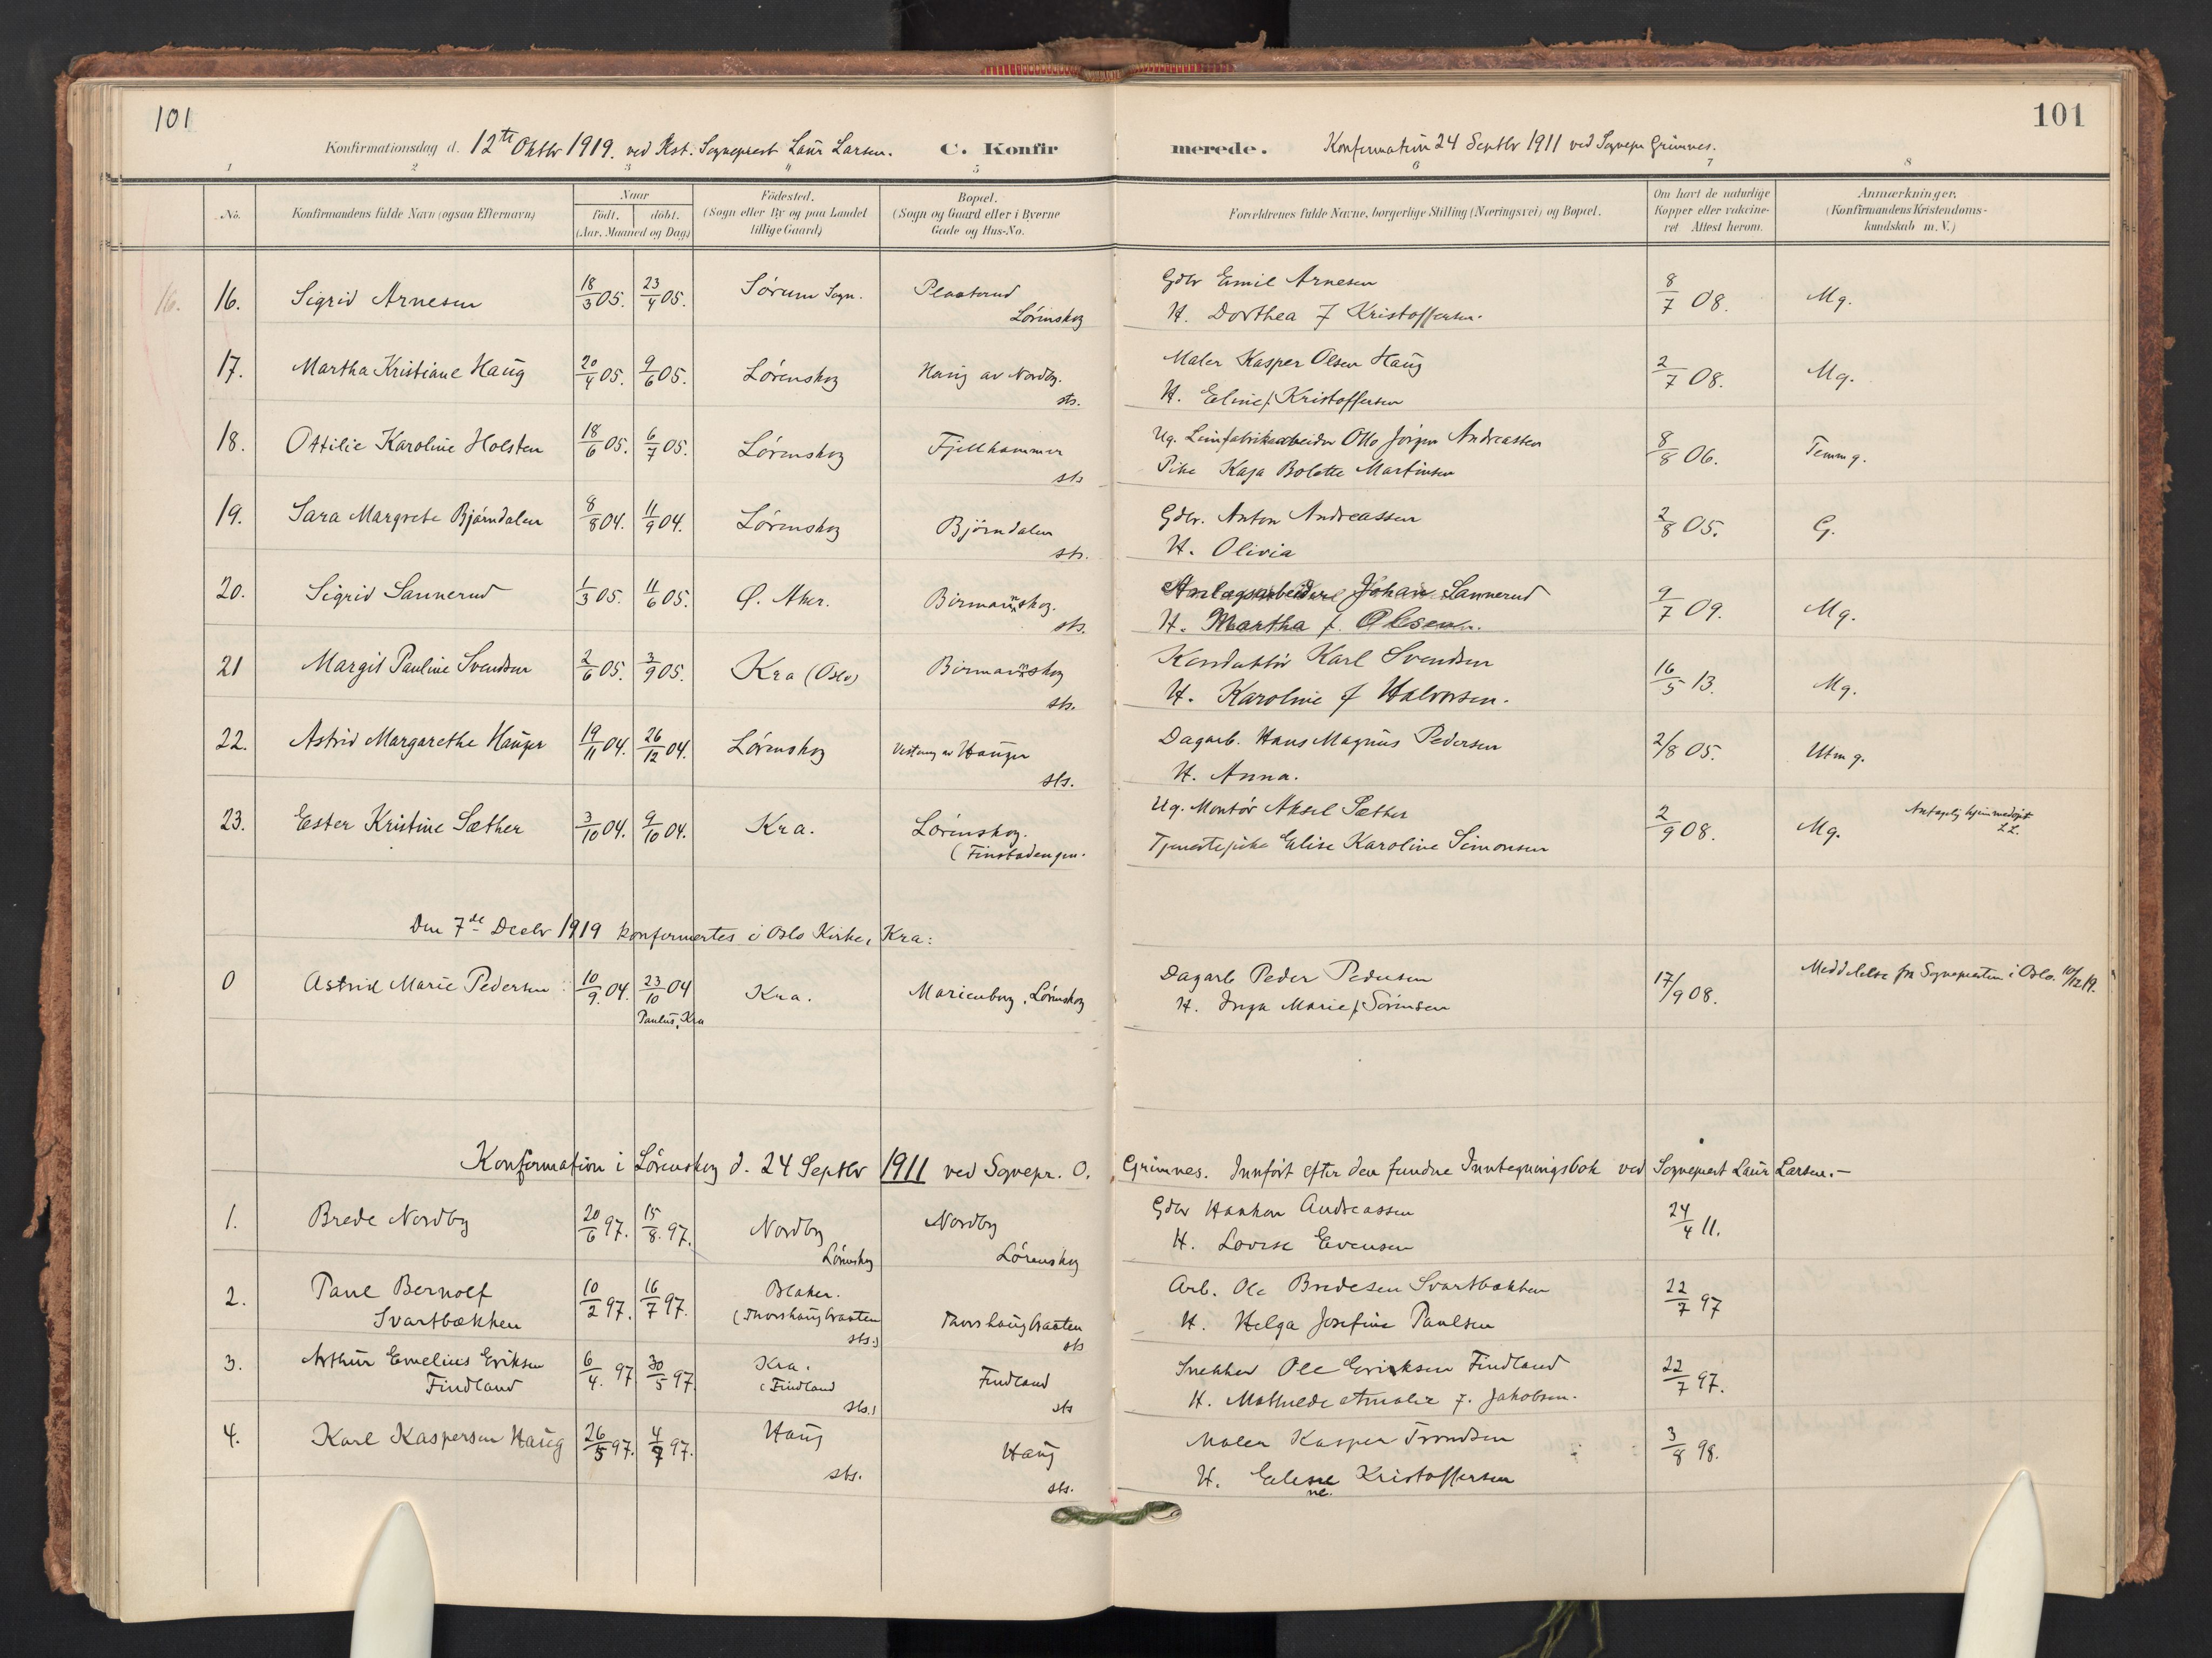 101
101
Konfirmationsdag d. 12te Oktbr 1919. ved Kst. Sogneprest Laur Larsen. C. Konfirmerede. Konfirmation 24 Septbr 1911 ved Sognepr Grimnes.
1 2 3 4 5 6 7 8
No. Konfirmandens fulde Navn (ogsaa Efternavn) Naar født. døbt. (Aar, Maaned og Dag) Födested. (Sogn eller By og paa Landet tillige Gaard) Bopæl. (Sogn og Gaard eller i Byerne Gade og Hus-No. Forældrenes fulde Navne, borgerlige Stilling (Næringsvei) og Bopæl. Om havt de naturlige Kopper eller vakcineret Attest herom. Anmærkninger. (Konfirmandens Kristendomskundskab m. V.)
16. 16. Sigrid Arnesen 18/3 05. 23/4 05. Sørum Sogn. Lörenskog Gdbr Emil Arnesen 8/7 08. Mg.
H. Dorthea f Kristoffersen.
17. Martha Kristiane Haug 20/4 05. 9/6 05. Lörenskog Haug av Nordby. sts. Maler Kasper Olsen Haug 2/7 08. Mg.
H. Eline f. Kristoffersen
18. Ottilie Karoline Holsten 18/6 05. 6/7 05. Lörenskog Fjellhammer sts Ug. Limfabrikarbeider Otto Jörgen Andreassen 8/8 06. Temmg.
Pike Kaja Bolette Martinsen
19. Sara Margrete Bjørndalen 8/8 04. 11/9 04. Lörenskog Bjørndalen sts. Gdbr. Anton Andreassen 2/8 05. G.
H. Olivia
20. Sigrid Sannerud 1/3 05. 11/6 05. Ø. Aker. Birmannskog. sts. Anlægsarbeider Johan Sannerud 9/7 09. Mg.
H. Martha f. Olsen.
21 Margit Pauline Svendsen 2/6 05. 3/9 05. Kra (Oslo) Birmannskog sts. Konduktör Karl Svendsen 16/5 13. Mg.
H. Karoline f Halvorsen.
22. Astrid Margarethe Hauger 19/11 04. 26/12 04. Lörenskog Vesteng av Hauger sts. Dagarb. Hans Magnus Pedersen 2/8 05. Utmg.
H. Anna.
23. Ester Kristine Sæther 3/10 04. 9/10 04. Kra. Lörenskog. (Finstadengen. Ug. Montör Aksel Sæther 2/9 08. Mg. Antagelig hjemmedøpt L.L.
Tjenestepike Elise Karoline Simonsen
Den 7de Decbr 1919 konfirmertes i Oslo Kirke, Kra:
0 Astrid Marie Pedersen 10/9 04. 23/10 04 Paulus, Kra Kra. Marienborg, Lörenskog Dagarb Peder Pedersen 17/9 08. Meddelelse fra Sognepresten i Oslo. 10/12 19.
H. Inga Marie f. Sörensen
Konfirmation i Lörenskog d. 24 Septbr 1911 ved Sognepr. O. Grimnes. Innført efter den fundne Inntegningsbok ved Sogneprest Laur Larsen. —
1. Brede Nordby 20/6 97. 15/8. 97. Nordby Lörenskog Nordby Lörenskog Gdbr Haakon Andreassen 24/4 11.
H. Lovise Evensen
2. Paul Bernolf Svartbækken 10/2 97. 16/7 97. Blaker. (Thorshaugbraaten sts.) Thorshaugbraaten sts Arb. Ole Bredesen Svartbækken 22/7 97
H. Helga Josefine Paulsen
3. Arthur Emelius Eriksen Findland 6/4. 97 30/5 97. Kra. (Findland sts.) Findland sts Snekker Ole Eriksen Findland 22/7 97.
H. Mathilde Amalie f. Jakobsen.
4. Karl Kaspersen Haug 26/5 97. 4/7 97. Haug sts. Haug sts. Maler Kasper Trondsen 3/8 98.
H. Kristoffersen
ne.